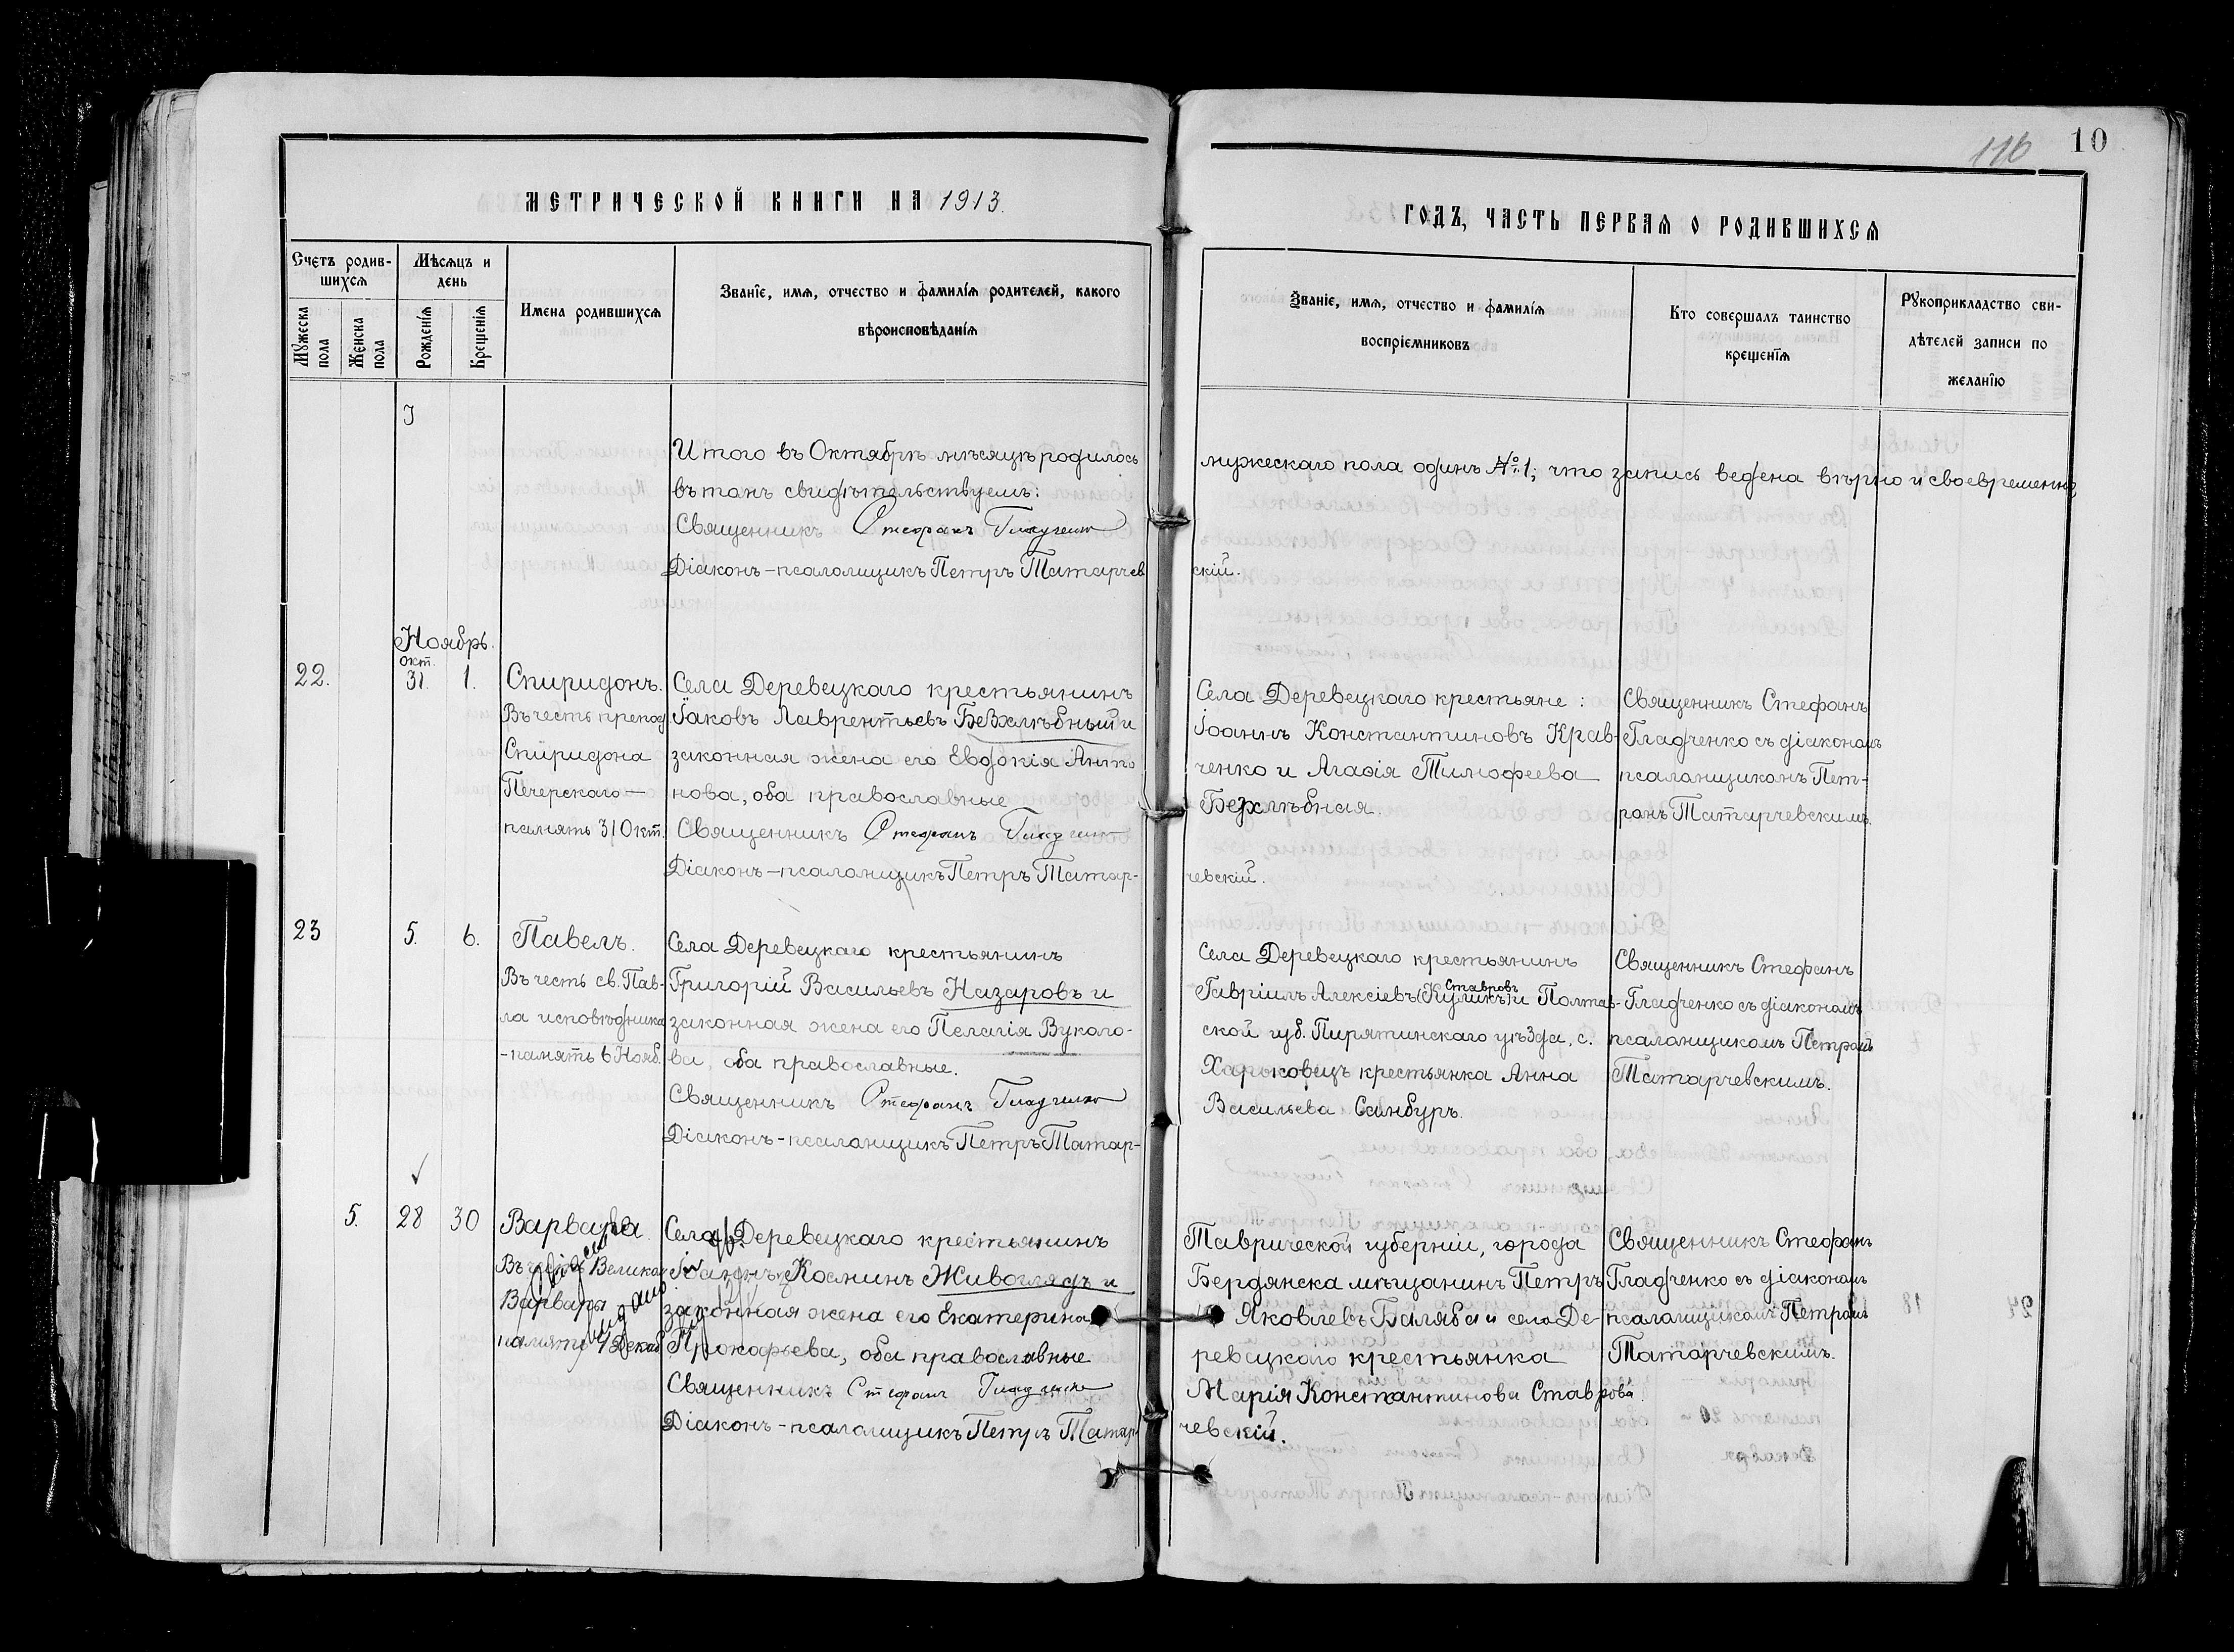 116
10
МЕТРИЧЕСКОЙ КНИГИ НА 1913.
ГОДЪ, ЧАСТЬ ПЕРВАЯ О РОДИВШИХСЯ
Счетъ родив-
шихся
Мужеска
пола
Женска
пола
Мѣсяцъ и
день
Рожденія
Крещенія
Имена родившихся
Званіе, имя, отчество и фамилія родителей, какого
вѣроисповѣданія
Званіе, имя, отчество и фамилія
воспріемниковъ
Кто совершалъ таинство
крещенія
Рукоприкладство сви-
дѣтелей записи по
желанію
Итого въ Октябрѣ мѣсяцѣ родилось
мужескаго пола одинъ №1; что запись ведена вѣрно и своевременно,
въ томъ свидѣтельствуемъ:
Священникъ Стефанъ Гладченко
Діаконъ-псаломщикъ Петръ Татарчев
скій.
Ноябрь.
22.
окт.
31.
1.
Спиридонъ.
Въ честь препод
Спиридона
Печерскаго—
память 31 Окт.
Села Деревецкаго крестьянинъ
Іаковъ Лаврентьевъ Безхлѣбный и
законная жена его Евдокія Анто
нова, оба православные
Священникъ Стефанъ Гладченко
Діаконъ-псаломщикъ Петръ Татар-
чевскій.
Села Деревецкаго крестьяне:
Іоаннъ Константиновъ Крав-
ченко и Агафія Тимофеева
Безхлѣбная.
Священникъ Стефанъ
Гладченко съ діакономъ
псаломщикомъ Пет-
ромъ Татарчевскимъ.
23
5.
6.
Павелъ.
Въ честь св. Пав-
ла исповѣдника
-память 6 Нояб.
Села Деревецкаго крестьянинъ
Григорій Васильевъ Назаровъ и
законная жена его Пелагія Вуколо-
ва, оба православные.
Священникъ Стефанъ Гладченко
Діаконъ-псаломщикъ Петръ Татар-
Села Деревецкаго крестьянинъ
Ставровъ
Гавріилъ Алексіевъ (Куликъ) и Полтав-
ской губ. Пирятинскаго уѣзда, с.
Харьковецъ крестьянка Анна
Васильева Самбуръ.
Священникъ Стефанъ
Гладченко съ діакономъ
псаломщикомъ Петромъ
Татарчевскимъ.
5.
28
30
Варвара.
Въ честь Великом
Варвары
память 4 Декаб
Села Деревецкаго крестьянинъ
Іоаннъ Косминъ Живоглядъ и
законная жена его Екатерина
Прокофьева, оба православные
Священникъ Стефанъ Гладченко
Діаконъ-псаломщикъ Петръ Татар
чевскій.
Таврической губерніи, города
Бердянска мѣщанинъ Петръ
Яковлевъ Баляба и села Де-
ревецкаго крестьянка
Марія Константинова Ставрова.
Священникъ Стефанъ
Гладченко съ діакономъ
псаломщикомъ Петромъ
Татарчевскимъ.